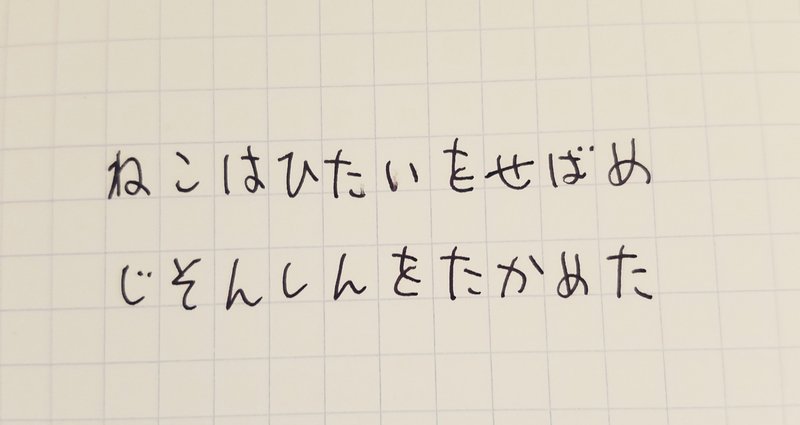 ねこはひたいをせばめ
じそんしんをたかめた